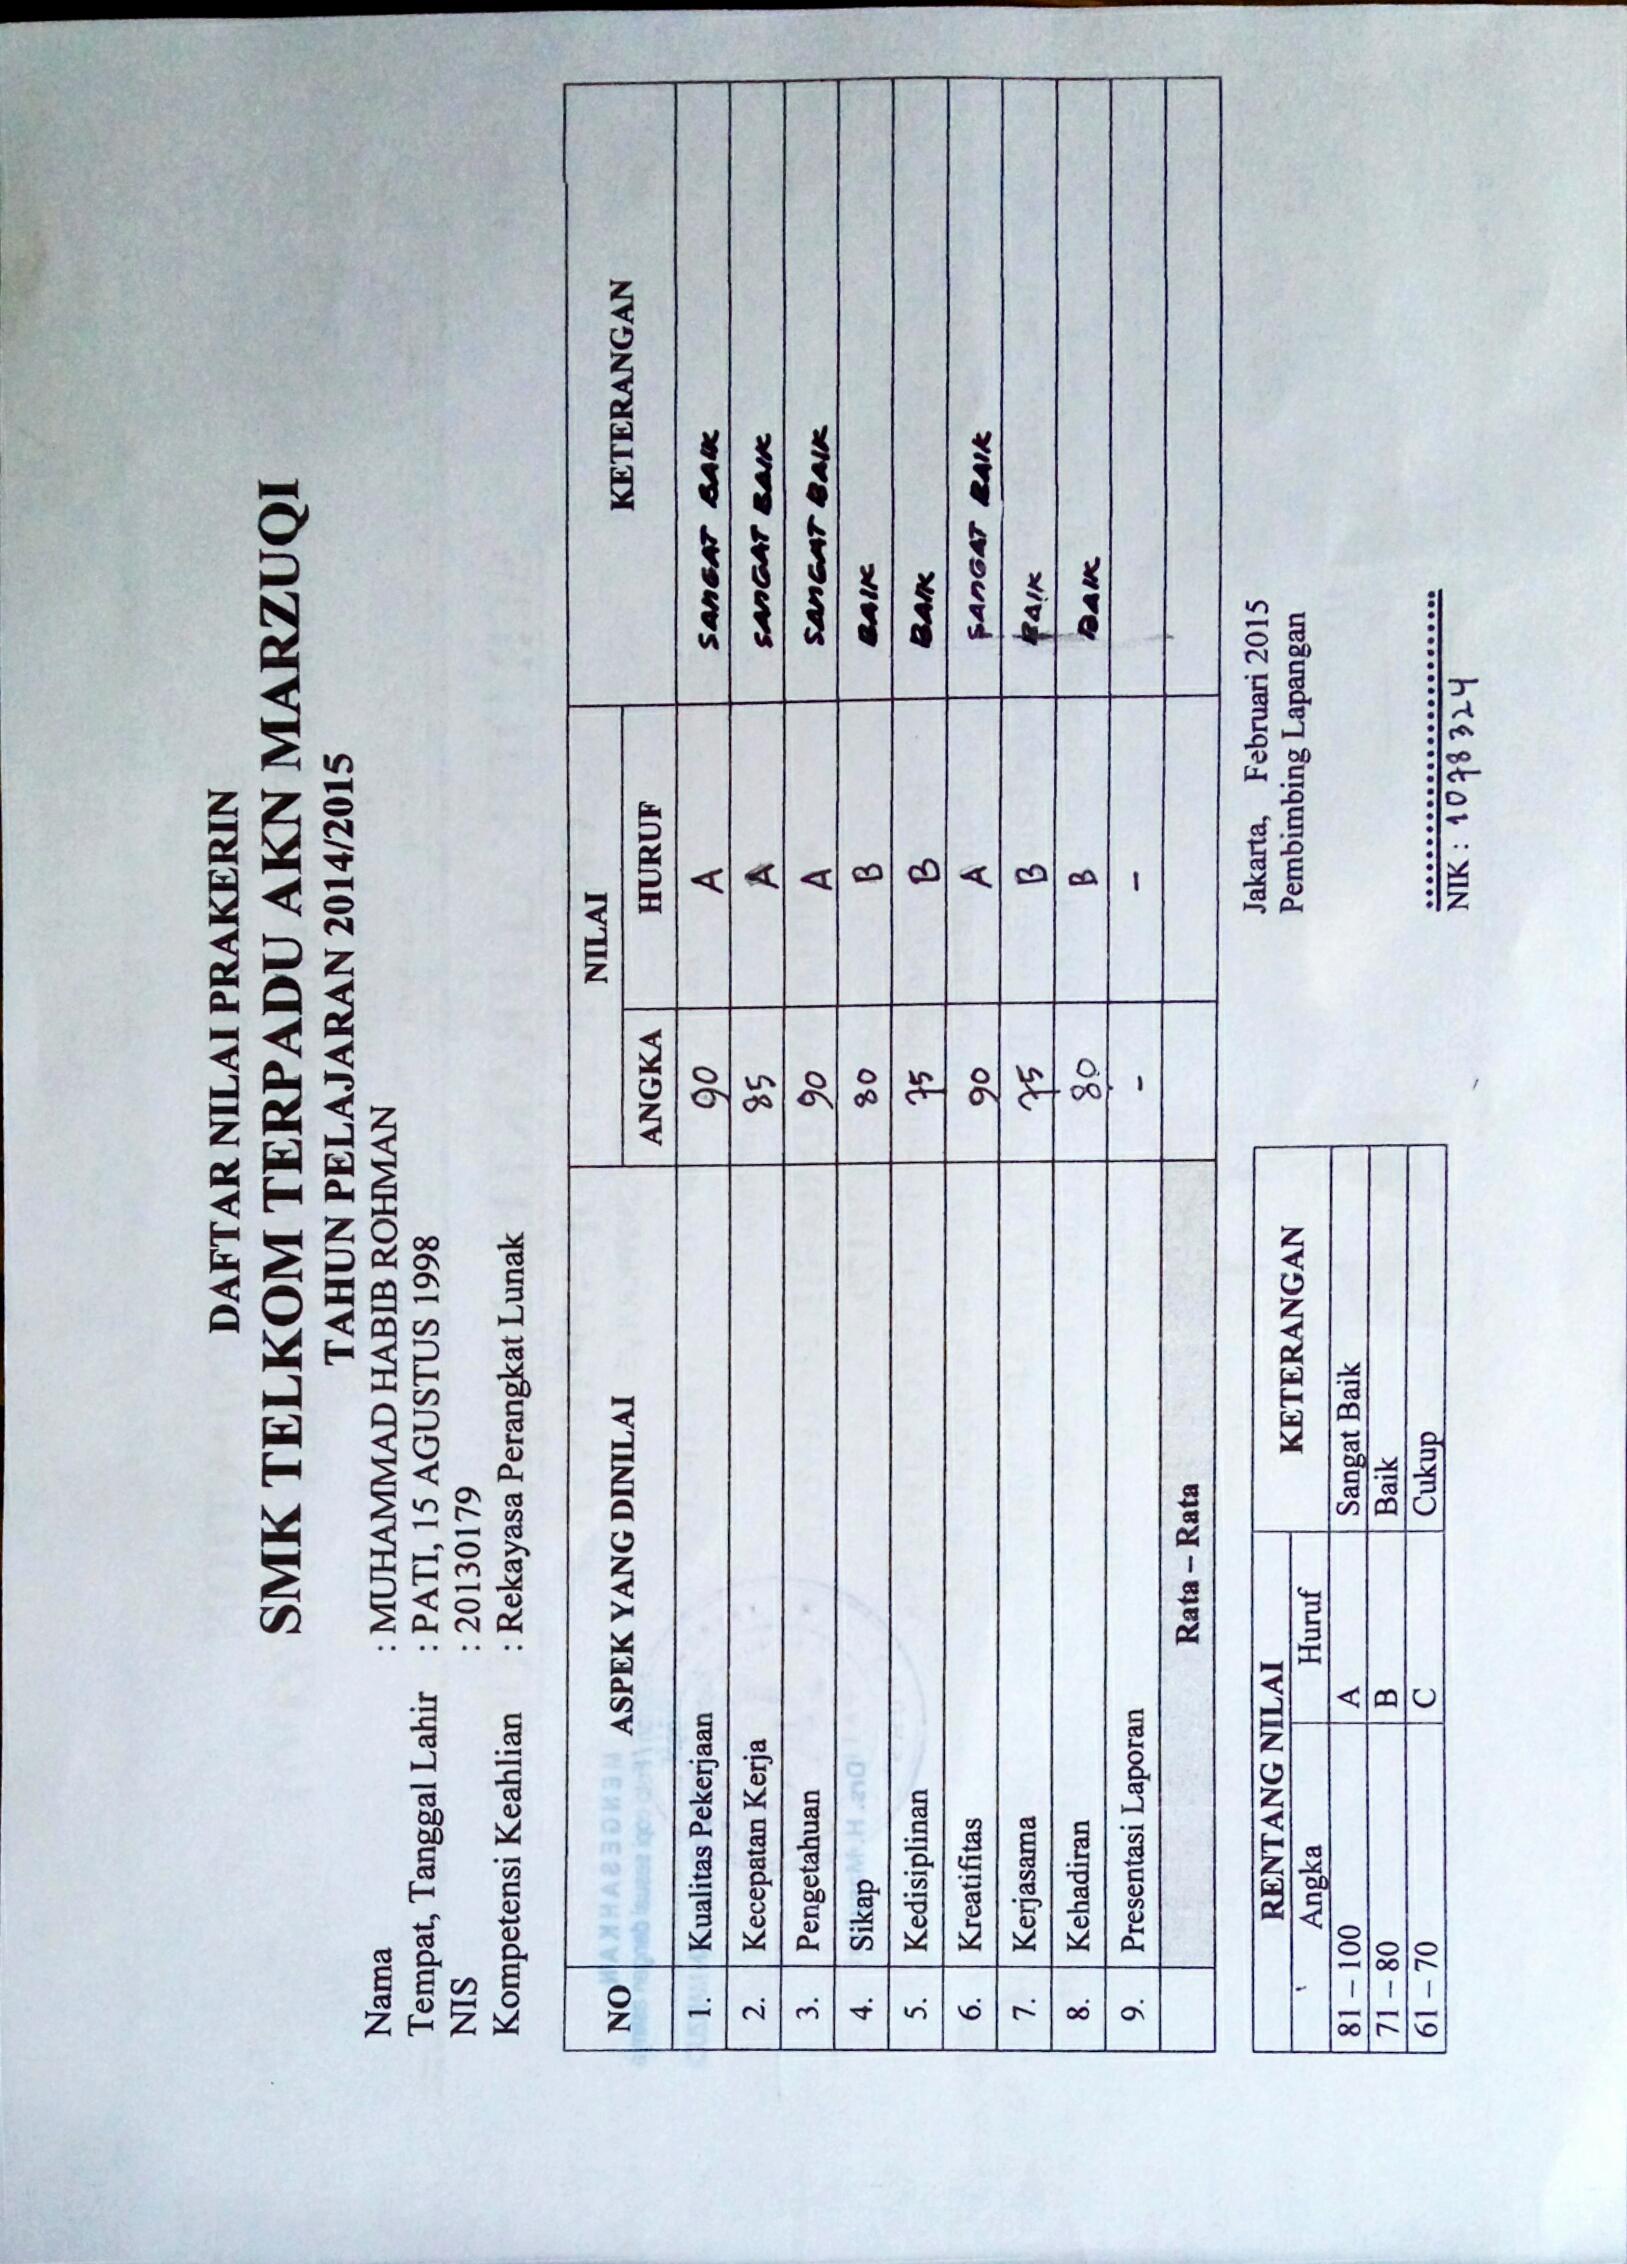 DAFTAR NILAI PRAKERIN
SMK TELKOM TERPADU AKN MARZUQI
TAHUN PELAJARAN 2014/2015
Nama : MUHAMMAD HABIB ROHMAN
Tempat, Tanggal Lahir : PATI, 15 AGUSTUS 1998
NIS : 20130179
Kompetensi Keahlian : Rekayasa Perangkat Lunak
NO ASPEK YANG DINILAI NILAI KETERANGAN
ANGKA HURUF
1. Kualitas Pekerjaan 90 A SANGAT BAIK
2. Kecepatan Kerja 85 A SANGAT BAIK
3. Pengetahuan 90 A SANGAT BAIK
4. Sikap 80 B BAIK
5. Kedisiplinan 75 B BAIK
6. Kreatifitas 90 A SANGAT BAIK
7. Kerjasama 75 B BAIK
8. Kehadiran 80 B BAIK
9. Presentasi Laporan - -
Rata – Rata
RENTANG NILAI KETERANGAN
Angka Huruf
81 – 100 A Sangat Baik
71 – 80 B Baik
61 – 70 C Cukup
Jakarta, Februari 2015
Pembimbing Lapangan
NIK : 1078324